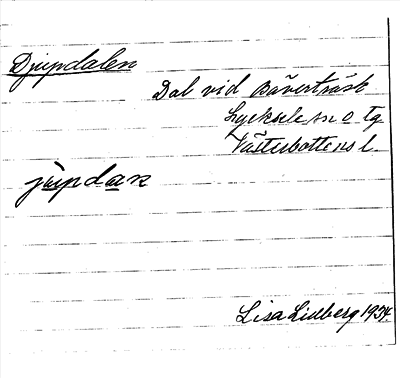 Djupdalen
Dal vid Bäverträsk
Lycksele sn o tg
Västerbottens l.
jupdaṉ
Lisa Lidberg 1934.